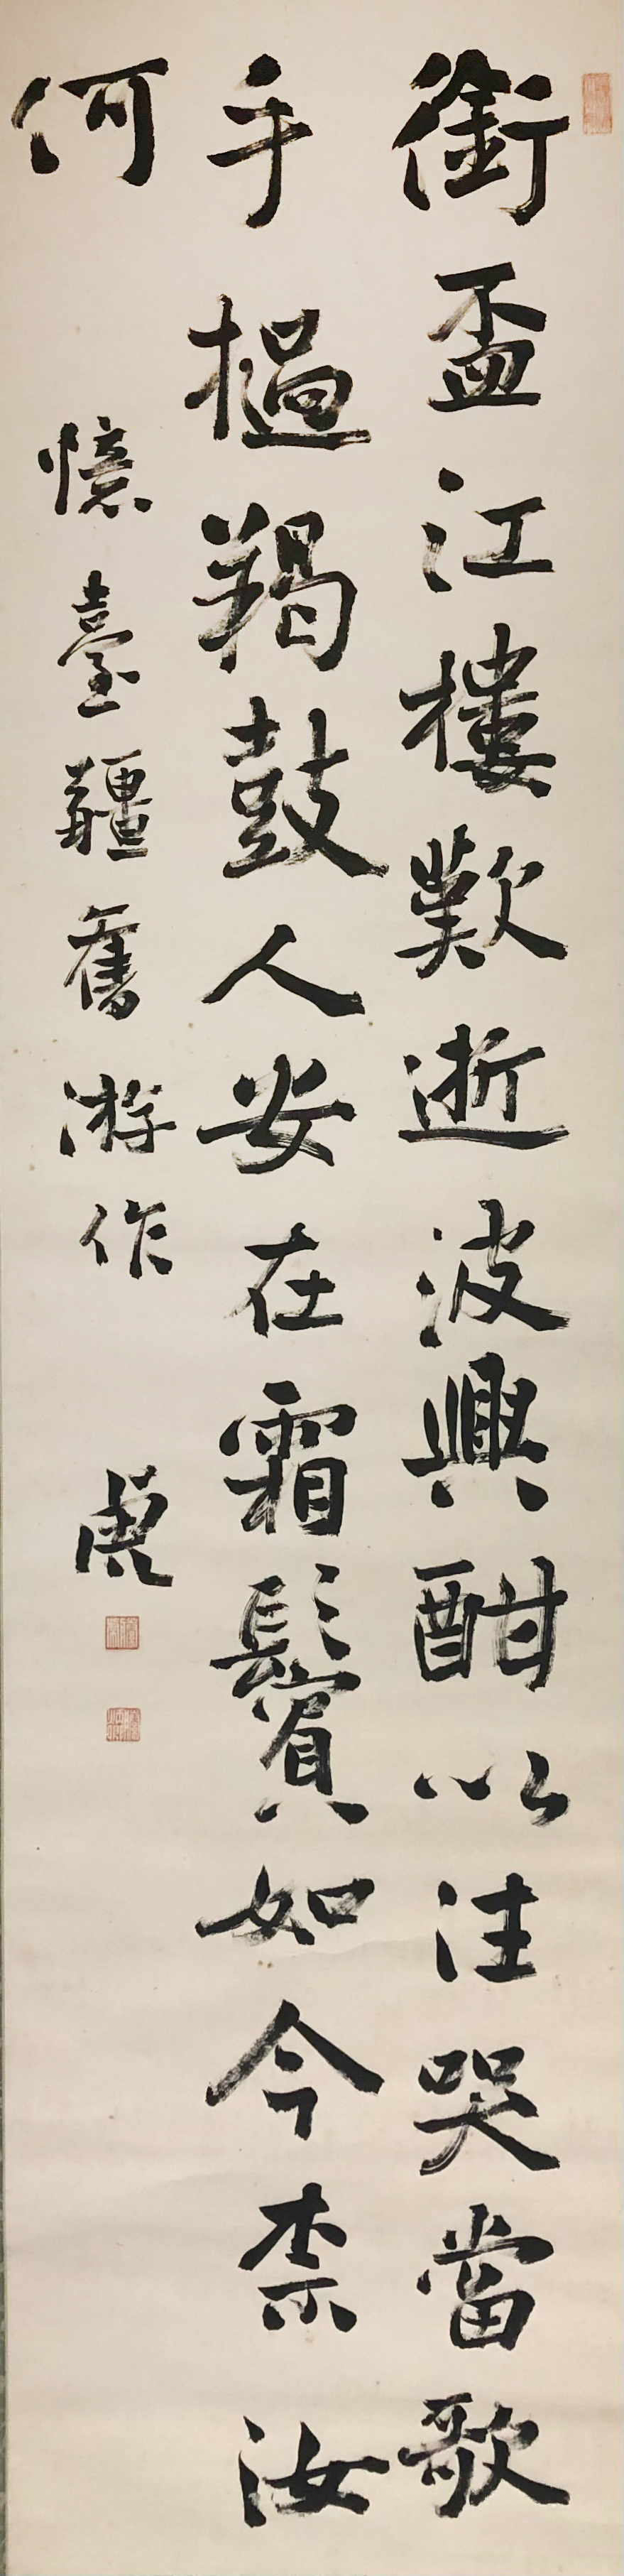 銜盃江樓歎逝波興酣以往哭當歌
手撾羯鼓人安在霜鬢如今柰汝
何
憶臺疆舊游作
虎